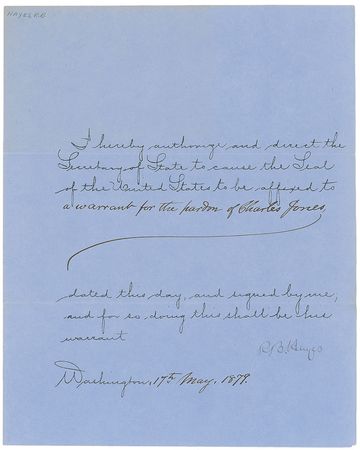 HAYES R.B
I hereby authorize and direct the
Secretary of State to cause the Seal
of the United States to be affixed to
a warrant for the pardon of Charles Jones,
dated this day, and signed by me,
and for so doing this shall be his
warrant
R. B. Hayes
Washington, 17th May, 1879.